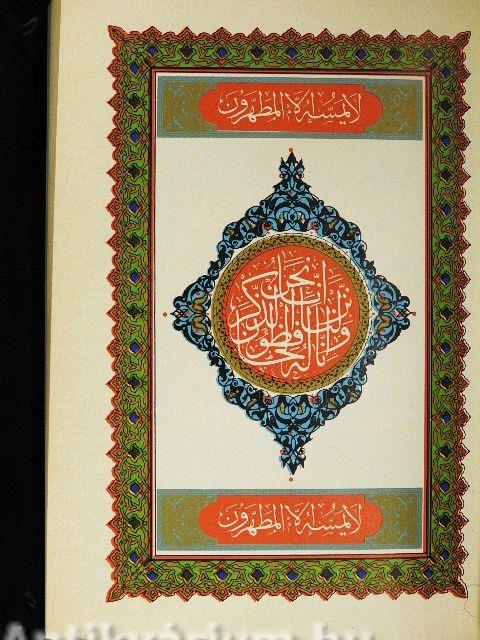 لا يمسه إلا المطهرون
إنا نحن نزلنا الذكر وإنا له لحافظون
لا يمسه إلا المطهرون
Antikvárium.hu